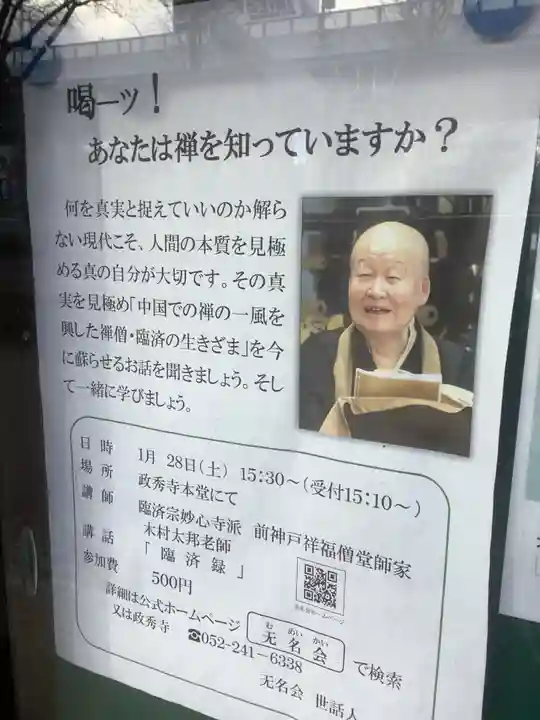 喝ーッ！
あなたは禅を知っていますか？
何を真実と捉えていいのか解ら
ない現代こそ、人間の本質を見極
める真の自分が大切です。その真
実を見極め「中国での禅の一風を
興した禅僧・臨済の生きざま」を今
に蘇らせるお話を聞きましょう。そし
て一緒に学びましょう。
日時 1月 28日(土) 15:30～(受付15:10～)
場所 政秀寺本堂にて
講師 臨済宗妙心寺派 前神戸祥福僧堂師家
木村太邦老師
講話 「臨済録」
参加費 500円
詳細は公式ホームページ 无名会 で検索
む めい かい
又は政秀寺 ☎052-241-6338
无名会 世話人